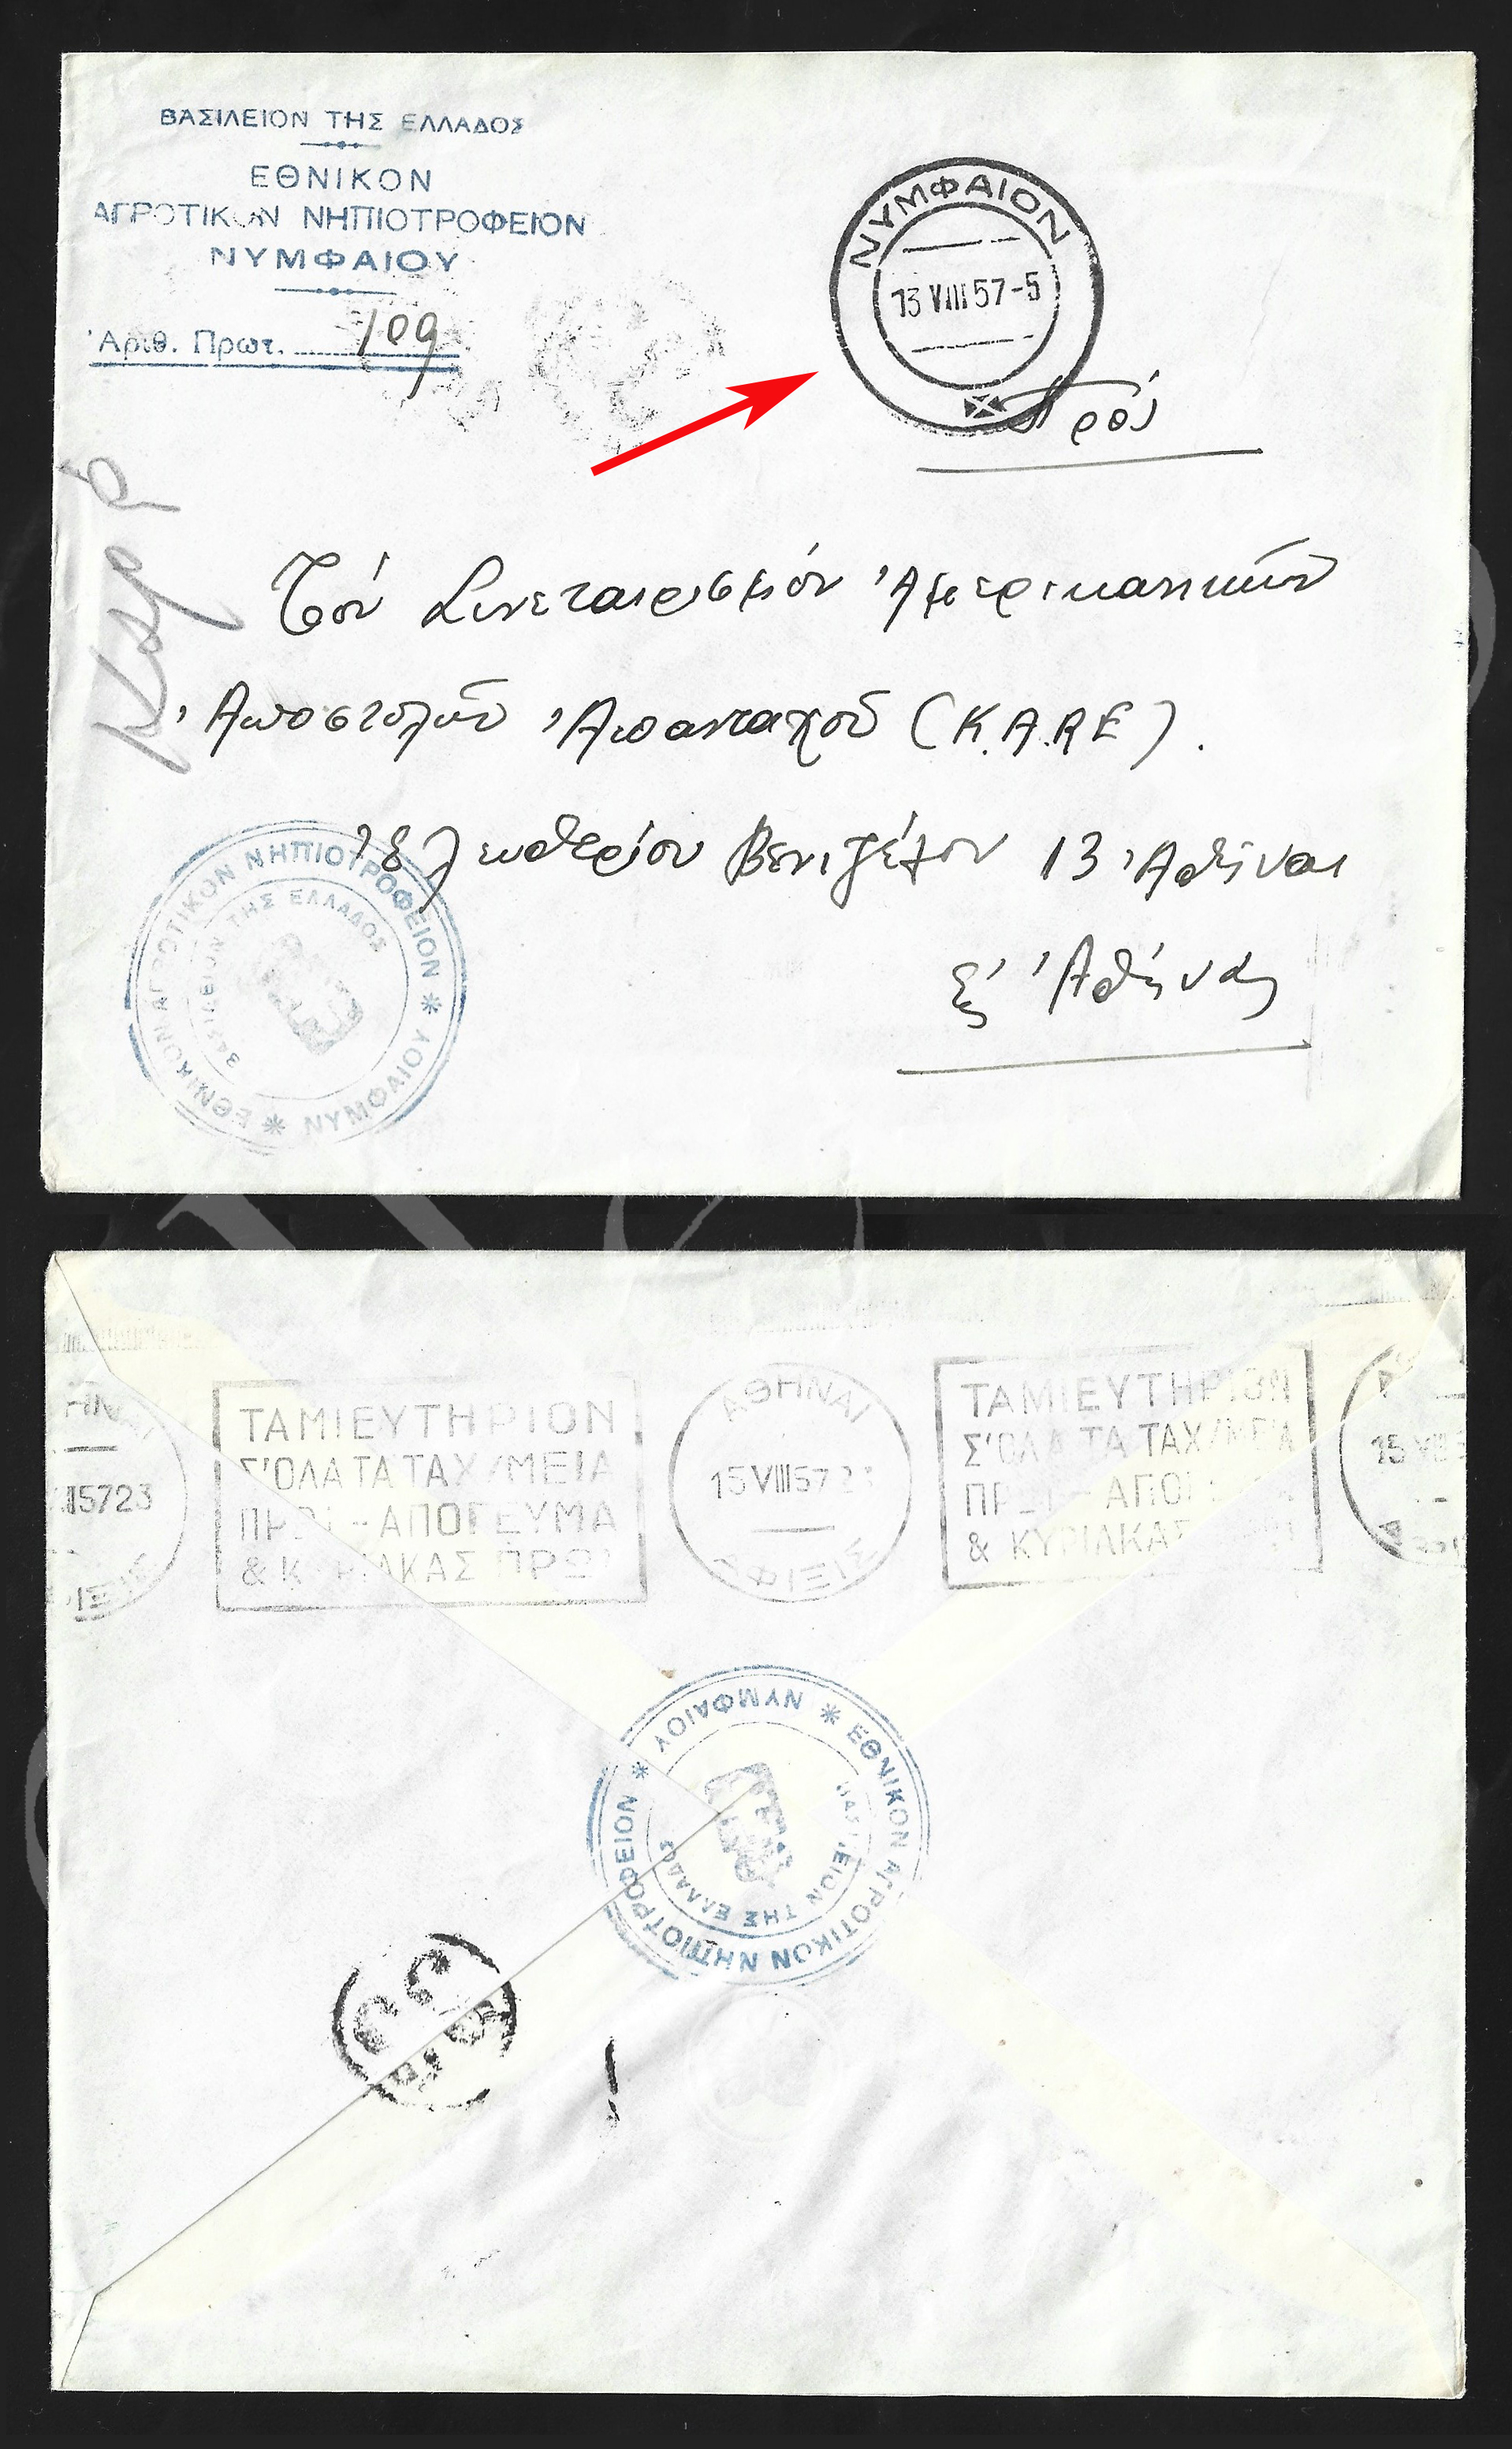 ΒΑΣΙΛΕΙΟΝ ΤΗΣ ΕΛΛΑΔΟΣ
ΕΘΝΙΚΟΝ
ΑΓΡΟΤΙΚΟΝ ΝΗΠΙΟΤΡΟΦΕΙΟΝ
ΝΥΜΦΑΙΟΥ
Ἀριθ. Πρωτ. 109
ΝΥΜΦΑΙΟΝ
13 VIII 57-5
Πρός
Τόν Συνεταιρισμόν Ἀμερικανικῶν
Ἀποστολῶν Ἁπανταχοῦ (Κ.Α.RE).
Ἐλευθερίου Βενιζέλου 13 Ἀθῆναι
Εἰς Ἀθήνας
ΕΘΝΙΚΟΝ ΑΓΡΟΤΙΚΟΝ ΝΗΠΙΟΤΡΟΦΕΙΟΝ * ΝΥΜΦΑΙΟΥ *
ΒΑΣΙΛΕΙΟΝ ΤΗΣ ΕΛΛΑΔΟΣ
ΤΑΜΙΕΥΤΗΡΙΟΝ
Σ'ΟΛΑ ΤΑ ΤΑΧ/ΜΕΙΑ
ΠΡΩΙ - ΑΠΟΓΕΥΜΑ
& ΚΥΡΙΑΚΑΣ ΠΡΩΙ
ΑΘΗΝΑΙ
15 VIII 57 23
ΑΦΙΞΙΣ
ΤΑΜΙΕΥΤΗΡΙΟΝ
Σ'ΟΛΑ ΤΑ ΤΑΧ/ΜΕΙΑ
ΠΡΩΙ - ΑΠΟΓΕΥΜΑ
& ΚΥΡΙΑΚΑΣ ΠΡΩΙ
ΕΘΝΙΚΟΝ ΑΓΡΟΤΙΚΟΝ ΝΗΠΙΟΤΡΟΦΕΙΟΝ * ΝΥΜΦΑΙΟΥ *
ΒΑΣΙΛΕΙΟΝ ΤΗΣ ΕΛΛΑΔΟΣ